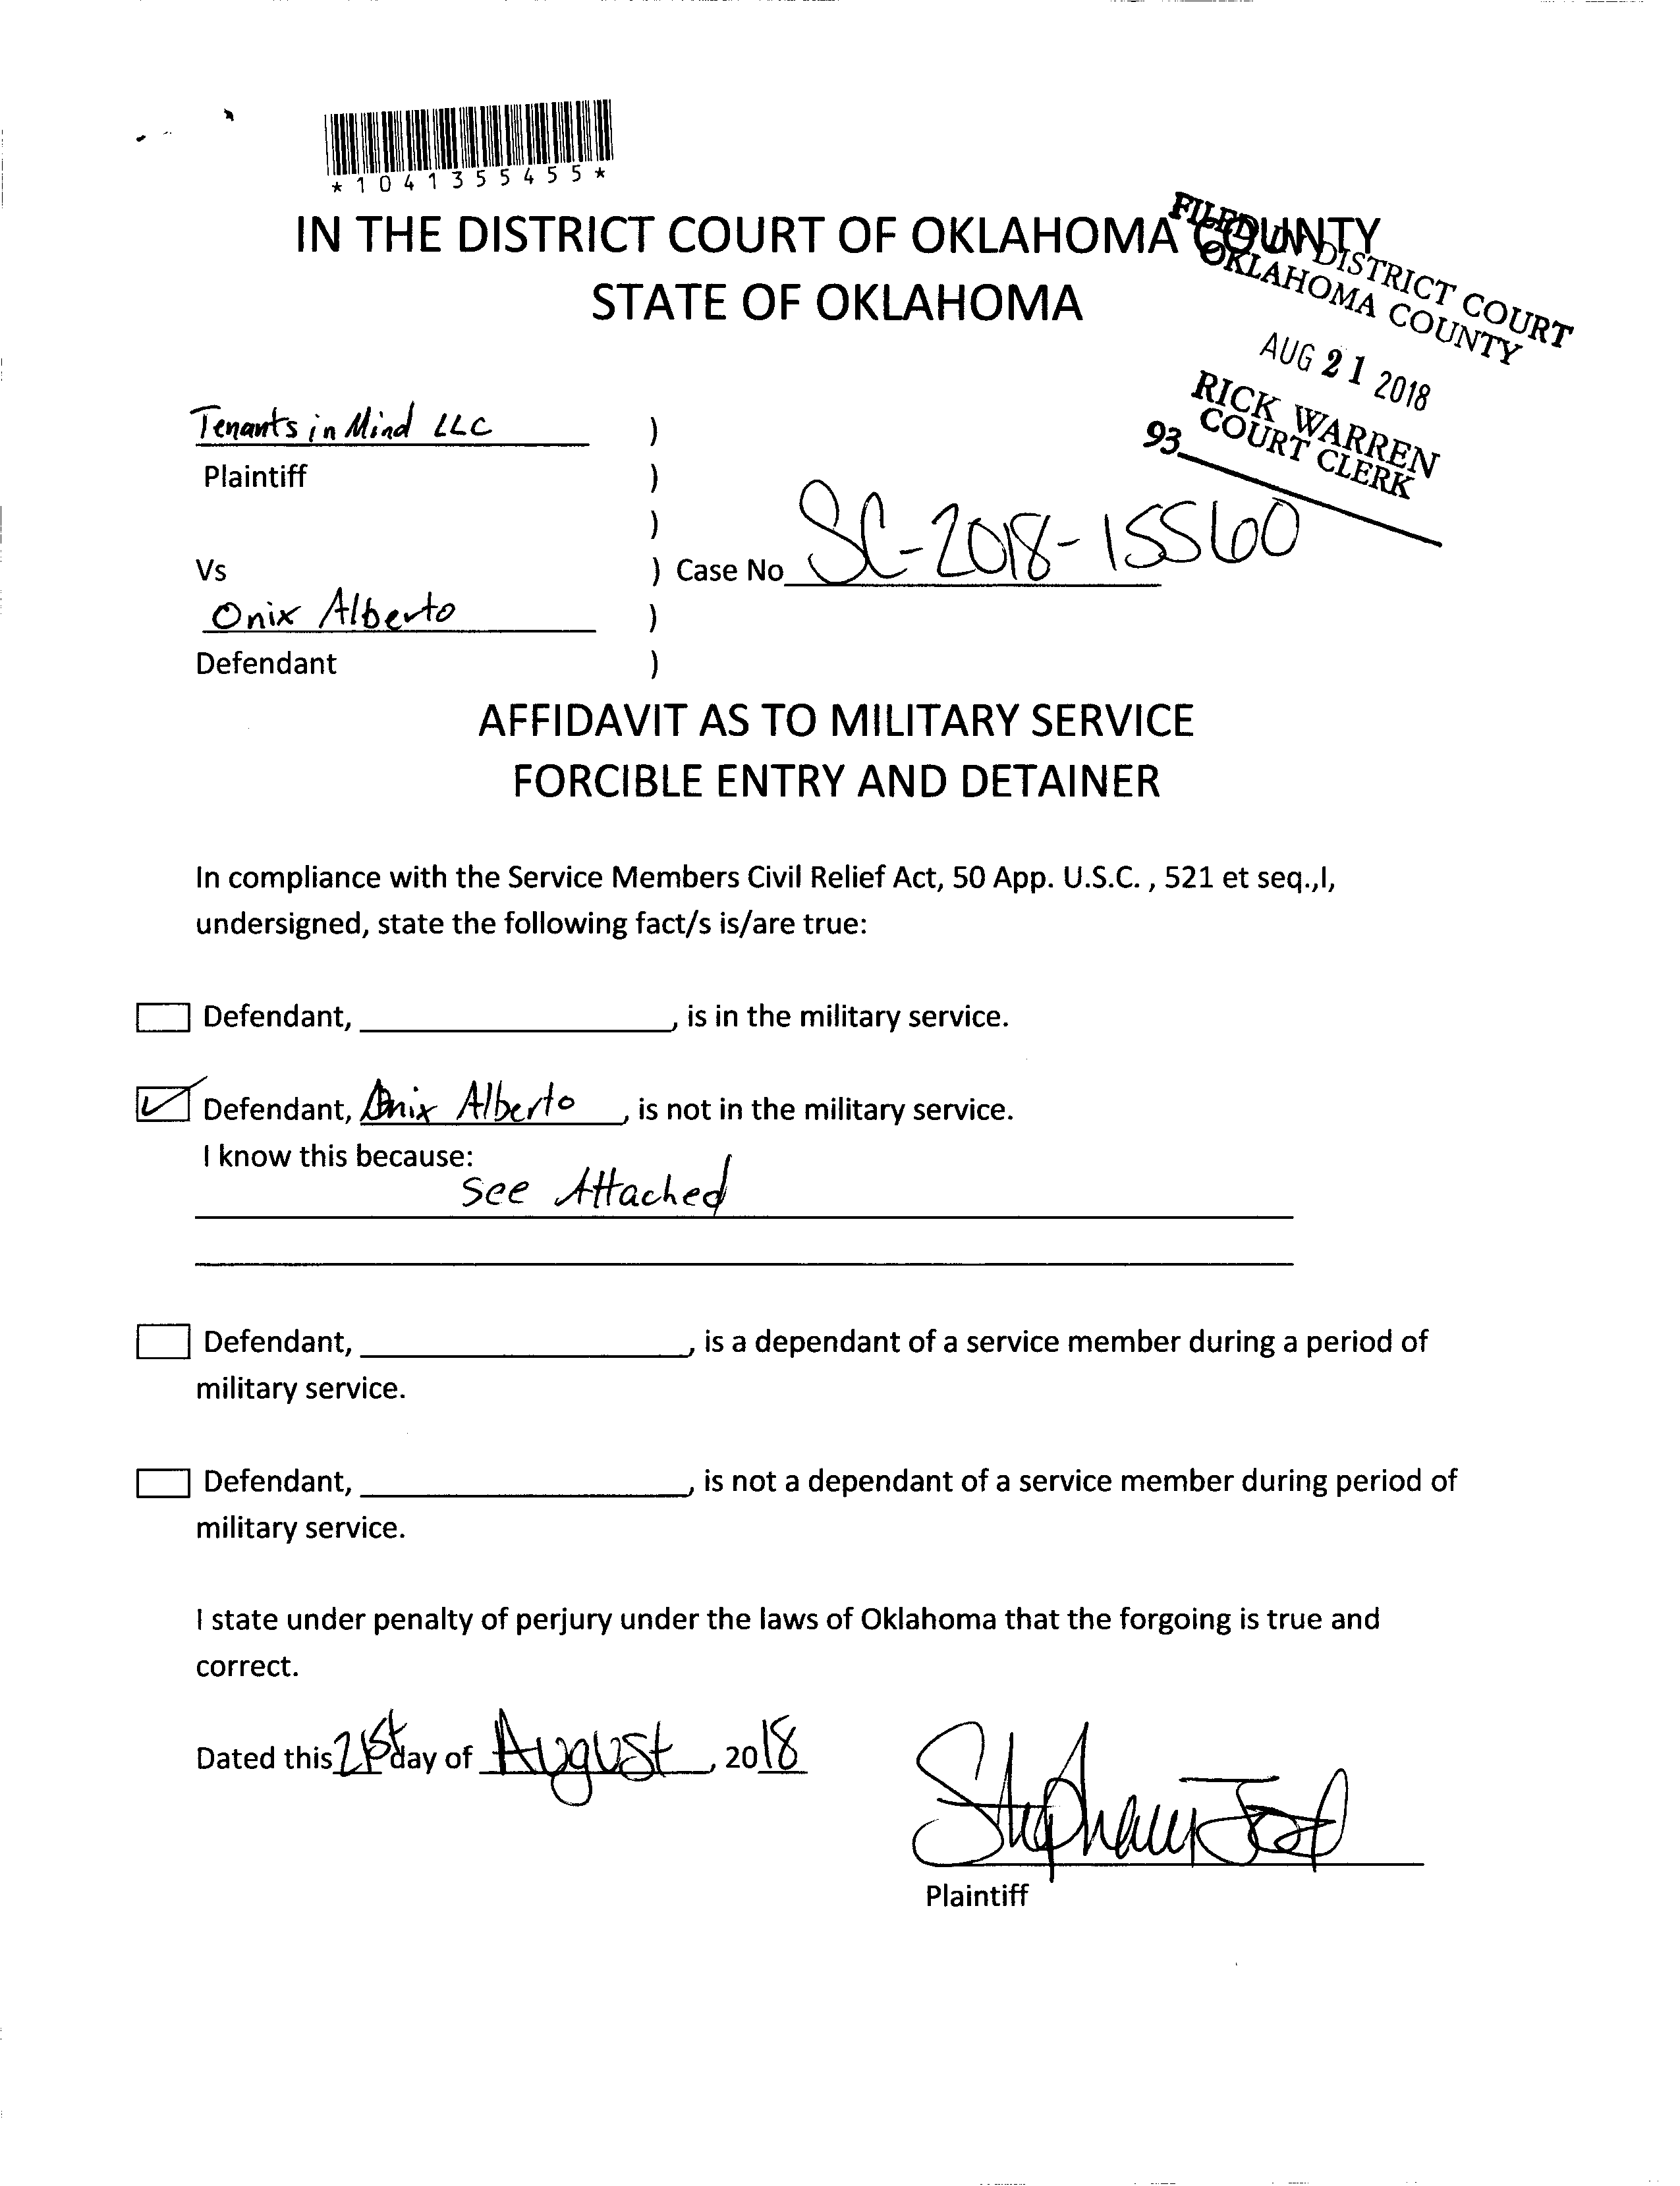 *1041355455*
IN THE DISTRICT COURT OF OKLAHOMA COUNTY
STATE OF OKLAHOMA
FILED IN DISTRICT COURT
OKLAHOMA COUNTY
AUG 21 2018
RICK WARREN
COURT CLERK
93
Tenants in Mind LLC )
Plaintiff )
)
Vs ) Case No SC-2018-15560
Onix Alberto )
Defendant )
AFFIDAVIT AS TO MILITARY SERVICE
FORCIBLE ENTRY AND DETAINER
In compliance with the Service Members Civil Relief Act, 50 App. U.S.C. , 521 et seq.,I,
undersigned, state the following fact/s is/are true:
Defendant, , is in the military service.
Defendant, Onix Alberto , is not in the military service.
I know this because:
See Attached
Defendant, , is a dependant of a service member during a period of
military service.
Defendant, , is not a dependant of a service member during period of
military service.
I state under penalty of perjury under the laws of Oklahoma that the forgoing is true and
correct.
Dated this 21st day of August, 2018
Plaintiff